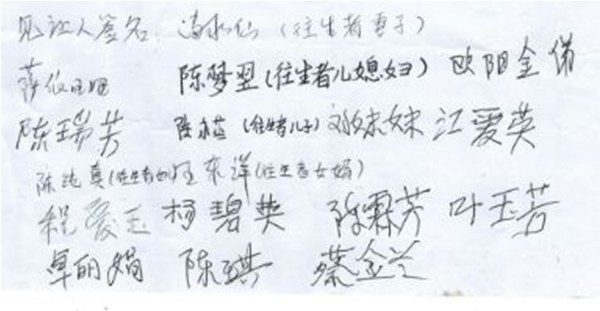 见证人签名: 潘水仙 (往生者妻子)
陈梦翌 (往生者儿媳妇) 欧阳金俤
陈瑞芳 (往生者儿子) 刘妹妹 江爱英
陈纯真 (往生者女) 汪东洋 (往生者女婿)
程爱玉 杨碧英 陈霖芳 叶玉芳
卓明娟 陈琪 蔡金兰